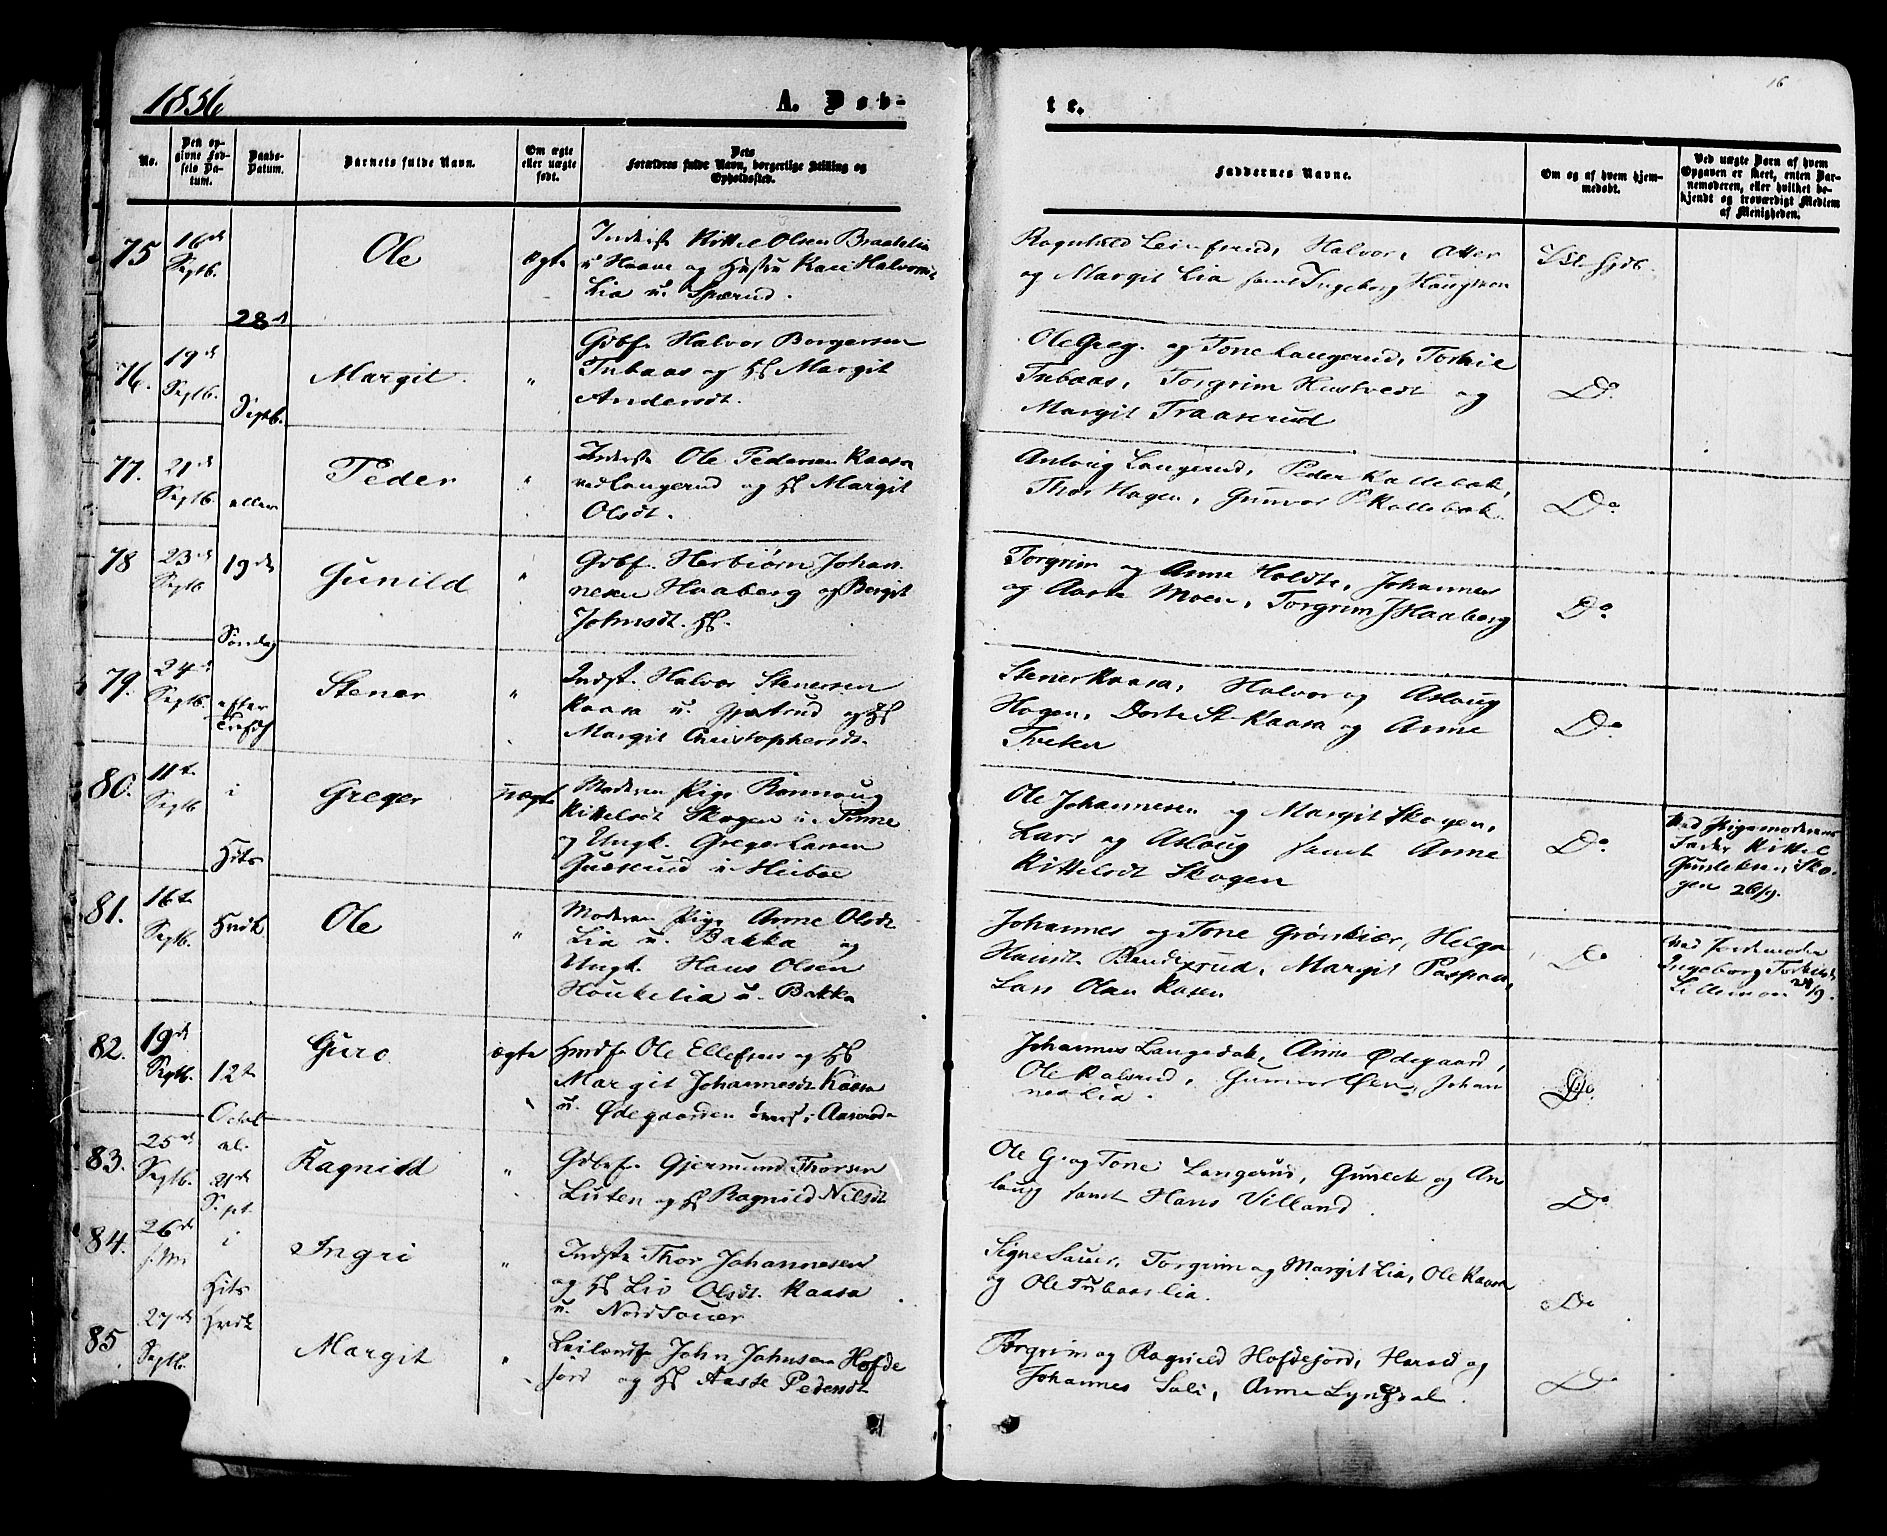 1856
A. Døb-
te.
16
No.
Den op-
givne Fød-
sels Da-
tum.
Daabs-
Datum.
Barnets fulde Navn.
Om ægte
eller uægte
født.
Dets
Forældres fulde Navn, borgerlige Stilling og
Opholdssted.
Faddernes Navne.
Om og af hvem hjem-
medøbt.
Ved uægte Børn af hvem
Opgaven er skeet, enten Bar-
nemoderen, eller hvilket be-
kjendt og troværdigt Medlem
af Menigheden.
75
16de
Septb.
Ole
ægte
Inderst Kittel Olsen Braakelia
u Hoave og Hustru Kari Halvorsdt
Lia u. Spærud.
Ragnhild Leinfsrud, Halvor, Atter
og Margit Lia samt Ingeborg Haugmoen
28d
Septb.
eller
19de
Søndag
efter
Trefdh
i
Hits
Hvdk.
76.
19de
Septb.
Margit.
"
Gdbf. Halvor Borgersen
Tubaas og HH Margit
Andersdt.
Ole Greg. og Tone Langerud, Torkil
Tubaas, Torgrim Hustvedt og
Margit Traaserud
Do.
77.
21de
Septb.
Peder
"
Inderste Ole Pedersen Kaasa
ved Langerud og HH Margit
Olsdt.
Anlaug Langerud, Peder Kallebæk,
Thor Hagen, Gunvor P Kallebæk.
Do.
78
23de
Septb
Gunild
"
Gdbf. Herbiørn Johan
nesen Haaberg og Bergit
Johnsdt. HH.
Torgrim og Anne Holdte, Johannes
og Aase Moen, Torgrim J Haaberg
Do.
79.
24de
Septb.
Stener
"
Indst. Halvor Stenersen
Kaasa u. Gjestrud og HH
Margit Christophersdt.
Stener Kaasa, Halvor og Aslaug
Hagen, Dorte St. Kaasa og Anne
Tveten
Do.
80.
11te
Septb
Greger
uægte
Moderen Pige Rønnoug
Kittelsdt Skogen u. Tinne
og Ungk. Greger Larsen
Guaserud u Heiboe
Ole Johannesen og Margit Skogen,
Lars og Aslaug samt Anne
Kittelsdt Skogen
Do.
Ved Pigemoderens
Fader Kittel
Gundeksen Sko-
gen 26/9.
81.
16te
Septb.
Ole
"
Moderen Pige Anne Olsdt
Lia u. Bakka og
Ungk. Hans Olsen
Houkelia u. Bakka
Johannes og Tone Grønkiær, Helga
Hansdt. Banderud, Margit
Lars Olsen Kasen
Do
Ved Jordemoder
Ingeborg Torkilsdt
Lillemoen 28/9.
82.
19de
Septb.
12te
Octob
al.
21de
S. p. t.
i
Hits
Hvdk
Guro
ægte
Husf Ole Ellefsen og HH
Margit Johannesdt Kaasa
u. Ødegaarden øvers i Aasende
Johannes Langedok, Anne Ødegaard,
Ole Kalsrud, Gunvor Øen, Johan
nes Lia.
Do
83.
25de
Septb.
Ragnild
"
Gdbef. Gjermund Thorsen
Listen og HH Ragnild Nilsdt
Ole G. og Tone Langerud, Guneck og An
laug samt Hans Villand.
Do
84.
26de
Ingri
"
Indste Thor Johannesen
og HH Liv Olsdt. Kaasa
u. Nordsouer
Signe Sauer, Torgrim og Margit Lia, Ole Kaasa
og Ole Tubaaslia.
Do
85
27de
Septb.
Margit
"
Leilændf John Johnsen Hofde
jord og HH Aaste Pedersdt
Torgrim og Ragnild Hofdejord, Harald og
Johannes Soli, Anne Lyngdal.
Do